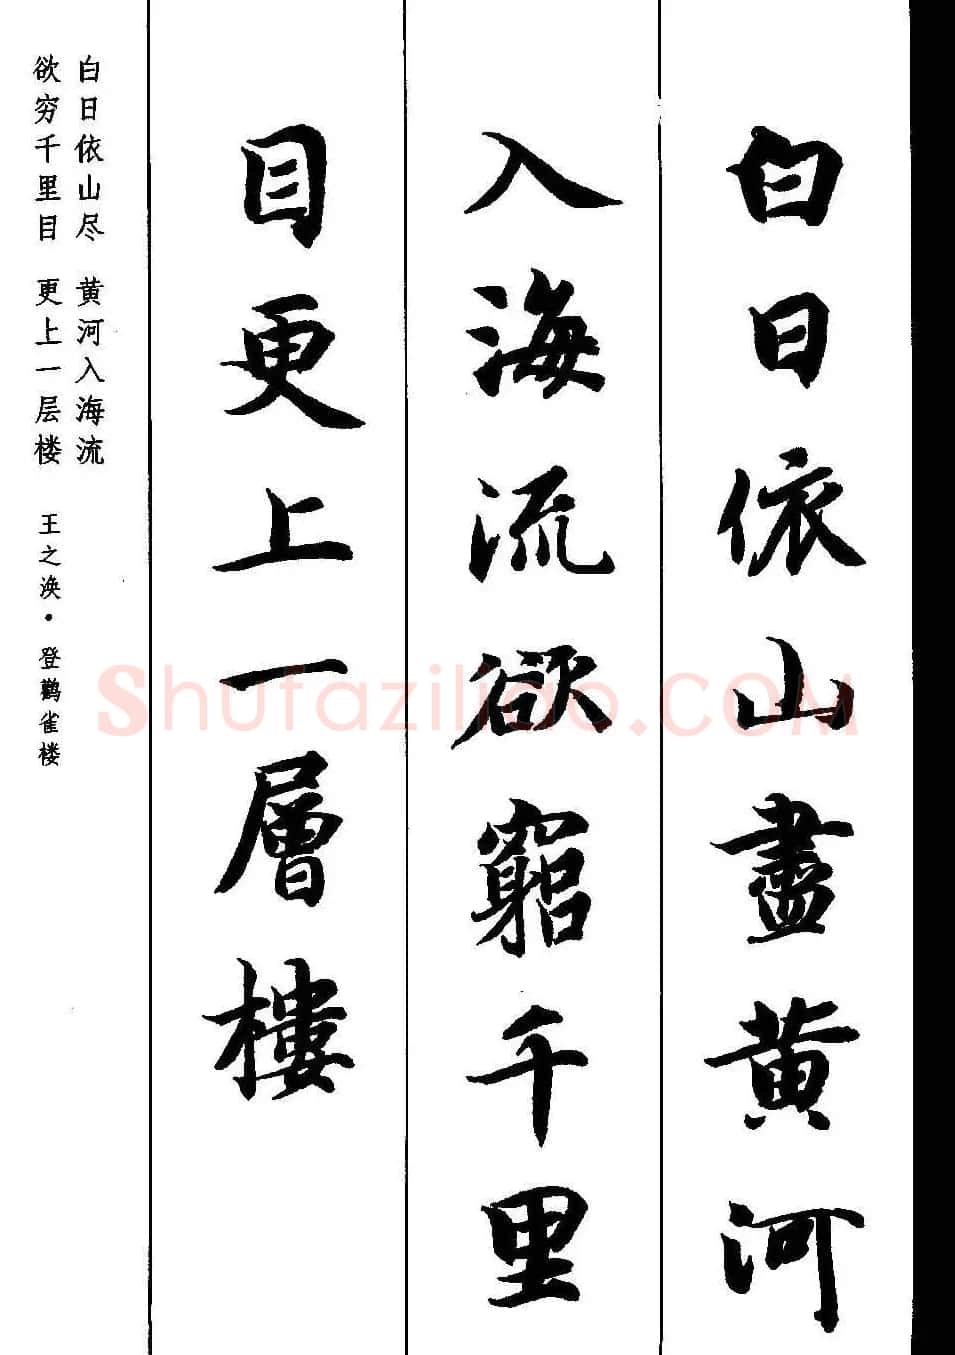 白日依山盡黄河
入海流欲窮千里
目更上一層樓
白日依山尽 黄河入海流
欲穷千里目 更上一层楼 王之涣·登鹳雀楼
Shufaziliao.COM